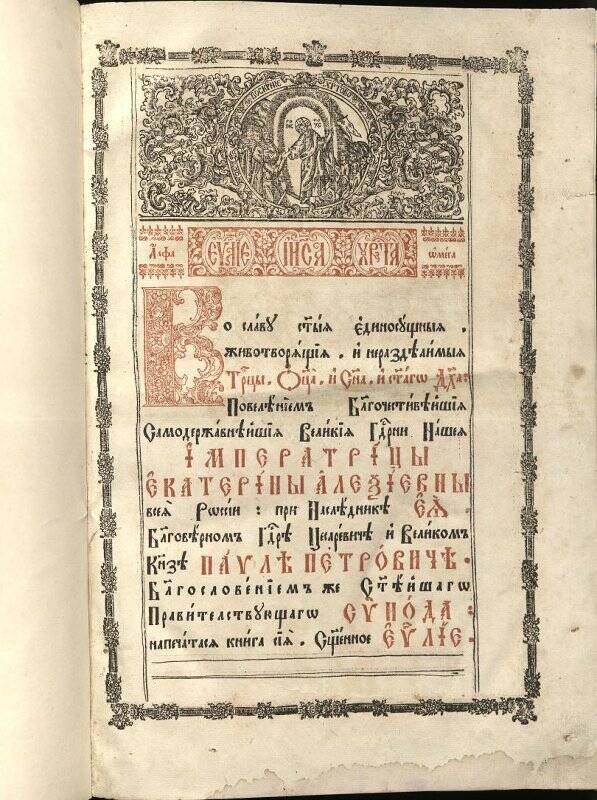 А҆лфа ЕѴ҃ЛІЕ І҆И҃СА ХР҃ТА ѡ҆ме́га
Во славу ст҃ы́ѧ є҆диносу́щныѧ,
животворѧ́щіѧ, и҆ нераздѣли́мыѧ
Трⷪ҇цы, Ѻ҆ц҃а̀, и҆ Сн҃а, и҆ ст҃а́гѡ Дх҃а:
Повелѣ́нїемъ Благочести́вѣйшїѧ
Самодержа́внѣйшїѧ Вели́кїѧ Гдⷭ҇рни На́шеѧ
І҆МПЕРАТРИ́ЦЫ
Є҆КАТЕРИ́НЫ А҆ЛЕѮІ́ЕВНЫ
всеѧ̀ Рѡссі́и: при Наслѣ́дникѣ Є҆Ѧ̀
Благовѣ́рномъ Гдⷭ҇рѣ Цеса́ревичѣ и҆ Вели́комъ
Кн҃зѣ ПА́VЛѢ ПЕТРО́ВИЧѢ.
Благослове́нїемъ же Ст҃ѣ́йшагѡ
Прави́телствующагѡ СѴ҆НО́ДА:
напеча́тасѧ кни́га сїѧ̀, Сщ҃е́нное ЕѴ҃ЛІЕ: